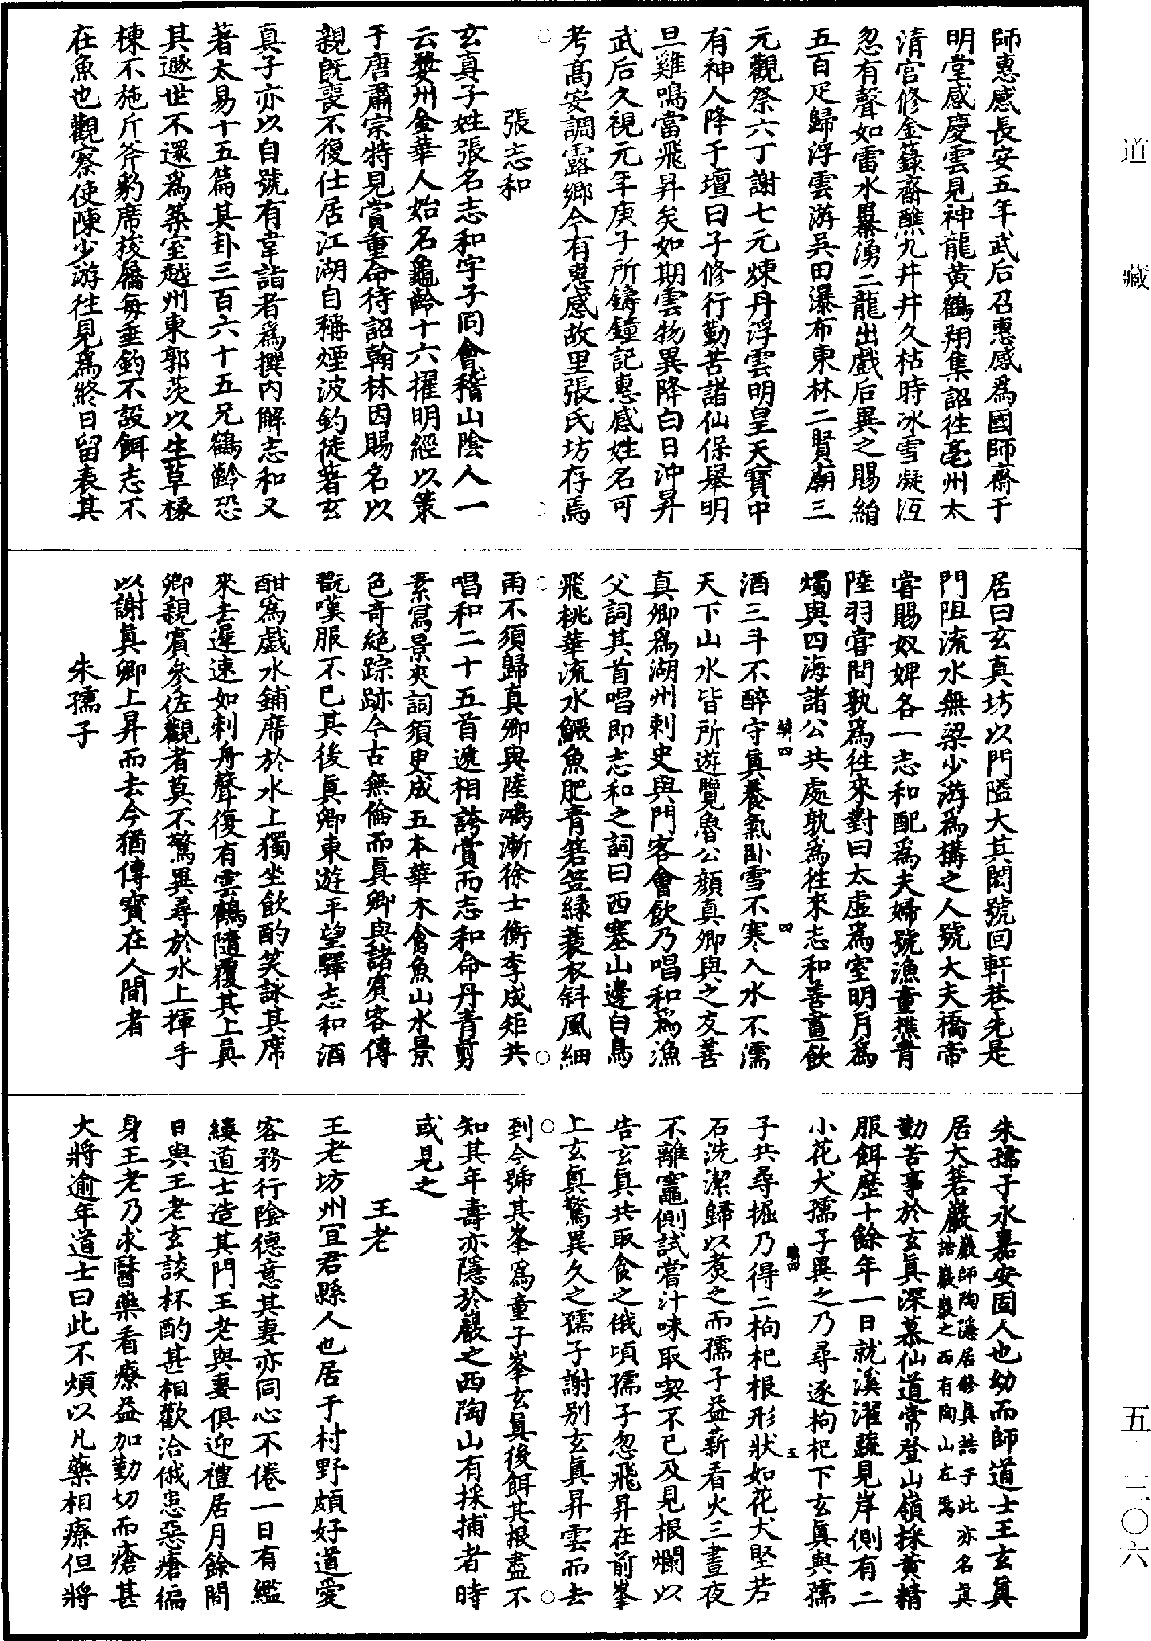 道藏
師惠感長安五年武后召惠感為國師齋于
明堂感慶雲見神龍黃鶴翔集詔往亳州太
清宮修金籙齋醮九井井久枯時冰雪凝沍
忽有聲如雷水暴湧二龍出戲后異之賜絹
五百疋歸浮雲游吳田瀑布東林二賢廟三
元觀祭六丁謝七元煉丹浮雲明皇天寶中
有神人降于壇曰子修行勤苦諸仙保舉明
旦雞鳴當飛昇矣如期雲物異降白日沖昇
武后久視元年庚子所鑄鐘記惠感姓名可
考高安調露鄉今有惠感故里張氏坊存焉
張志和
玄真子姓張名志和字子同會稽山陰人一
云婺州金華人始名龜齡十六擢明經以策
于唐肅宗特見賞重命待詔翰林因賜名以
親旣喪不復仕居江湖自稱煙波釣徒著玄
真子亦以自號有韋詣者為撰內解志和又
著太易十五篇其卦三百六十五兄鶴齡恐
其遯世不還為築室越州東郭茨以生草椽
棟不施斤斧豹席椶屩每垂釣不設餌志不
在魚也觀察使陳少游往見為終日留表其
居曰玄真坊以門隘大其閎號回軒巷先是
門阻流水無梁少游為構之人號大夫橋帝
嘗賜奴婢各一志和配為夫婦號漁童樵青
陸羽嘗問孰為往來對曰太虛為室明月為
燭與四海諸公共處孰為往來志和善畫飲
酒三斗不醉守真養氣臥雪不寒入水不濡
天下山水皆所遊覽魯公顏真卿與之友善
真卿為湖州刺史與門客會飲乃唱和為漁
父詞其首唱即志和之詞曰西塞山邊白鳥
飛桃華流水鱖魚肥青箬笠綠蓑衣斜風細
雨不須歸真卿與陸鴻漸徐士衡李成矩共
唱和二十五首遞相誇賞而志和命丹青剪
素寫景夾詞須臾成五本華木禽魚山水景
色奇絕踪跡今古無倫而真卿與諸賓客傳
翫嘆服不已其後真卿東遊平望驛志和酒
酣為戲水鋪席於水上獨坐飲酌笑詠其席
來去遲速如刺舟聲復有雲鶴隨覆其上真
卿親賓參佐觀者莫不驚異尋於水上揮手
以謝真卿上昇而去今猶傳寶在人間者
朱孺子
朱孺子永嘉安固人也幼而師道士王玄真
居大箬巖巖師陶隱居修真誥于此亦名真
誥巖巖之西有陶山在焉
勤苦事於玄真深慕仙道常登山嶺採黃精
服餌歷十餘年一日就溪濯蔬見岸側有二
小花犬孺子異之乃尋逐拘杞下玄真與孺
子共尋掘乃得二枸杞根形狀如花犬堅若
石洗潔歸以煮之而孺子益薪看火三晝夜
不離竈側試嘗汁味取喫不已及見根爛以
告玄真共取食之俄頃孺子忽飛昇在前峯
上玄真驚異久之孺子謝別玄真昇雲而去
到今號其峯為童子峯玄真後餌其根盡不
知其年壽亦隱於巖之西陶山有採捕者時
或見之
王老
王老坊州宜君縣人也居于村野頗好道愛
客務行陰德意其妻亦同心不倦一日有繿
縷道士造其門王老與妻俱迎禮居月餘間
日與王老玄談杯酌甚相歡洽俄患惡瘡徧
身王老乃求醫藥看療益加勤切而瘡甚
大將逾年道士曰此不煩以凡藥相療但將
五 二〇六